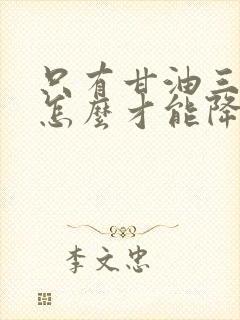 只有甘油三
怎麼才能降
李文忠